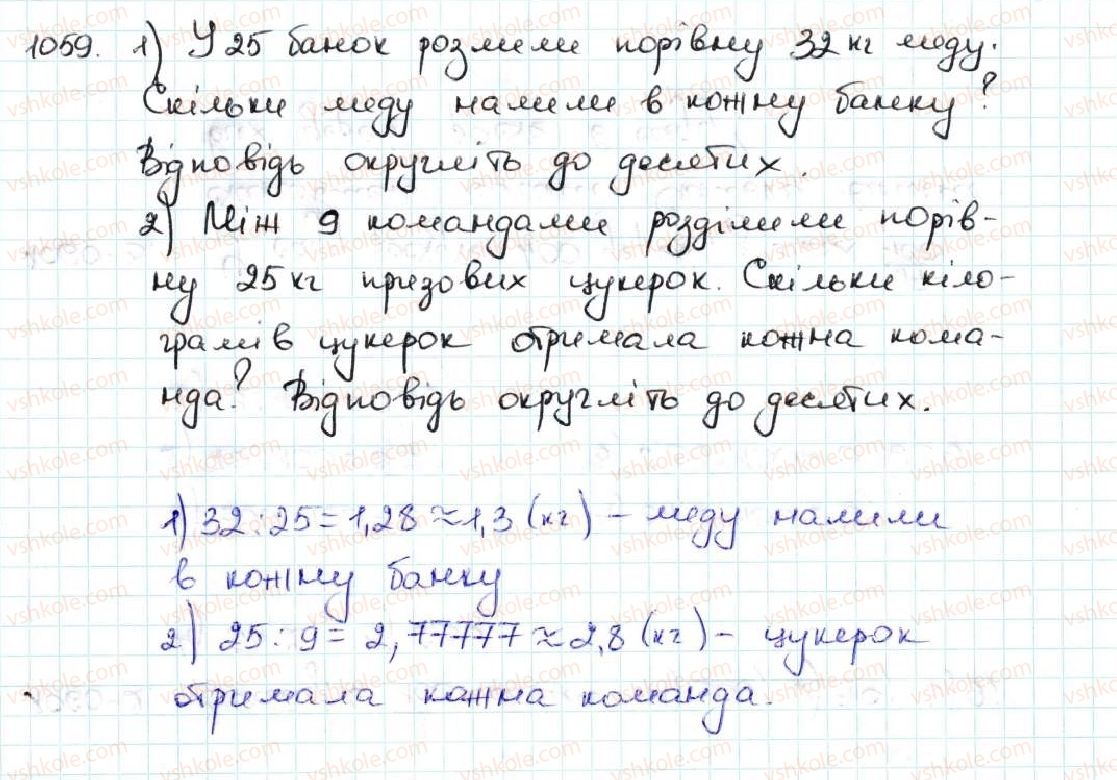 1059. 1) У 25 банок розлили порівну 32 кг меду.
Скільки меду налили в кожну банку?
Відповідь округліть до десятих.
2) Між 9 командами розділили порів-
ну 25 кг призових цукерок. Скільки кіло-
грамів цукерок отримала кожна кома-
нда? Відповідь округліть до десятих.
1) 32 : 25 = 1,28 ≈ 1,3 (кг) - меду налили
в кожну банку
2) 25 : 9 = 2,77777 ≈ 2,8 (кг) - цукерок
отримала кожна команда.